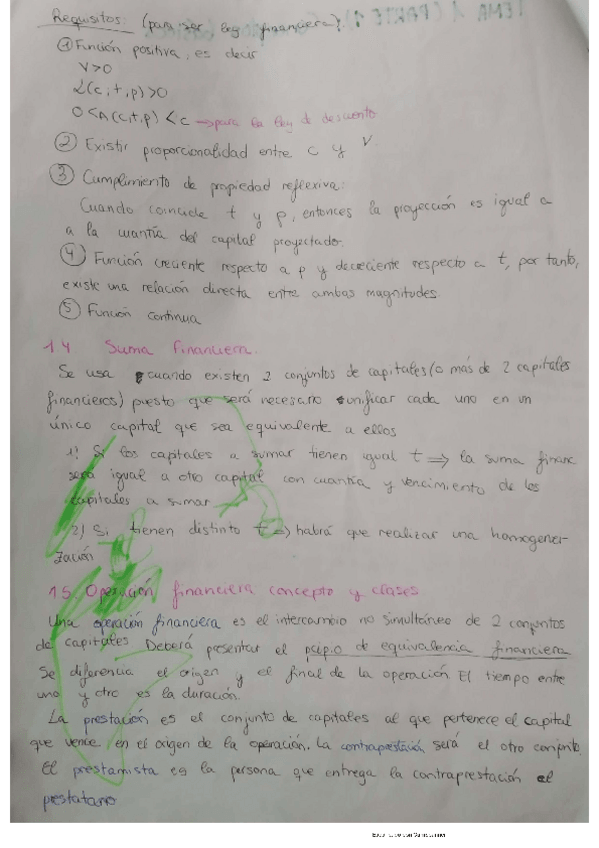 Requisitos: (para ser ley financiera).
① Función positiva, es decir
V>0
L(c,t,p)>0
0<A(c,t,p)<c → para la ley d descuento
② Existir proporcionalidad entre c y V.
③ Cumplimiento de propiedad reflexiva:
Cuando coincide t y p, entonces la proyección es igual a
a la cuantía del capital proyectado.
④ Función creciente respecto a p y decreciente respecto a t, por tanto,
existe una relación directa entre ambas magnitudes.
⑤ Función continua
1.4 Suma financiera.
Se usa cuando existen 2 conjuntos de capitales (o más de 2 capitales
financieros) puesto que será necesario unificar cada uno en un
único capital que sea equivalente a ellos
1) Si los capitales a sumar tienen igual t ⇒ la suma financ
será igual a otro capital con cuantía y vencimiento de los
capitales a sumar
2) Si tienen distinto t ⇒ habrá que realizar una homogenei-
zación
1.5 Operación financiera concepto y clases
Una operación financiera es el intercambio no simultáneo de 2 conjuntos
de capitales. Deberá presentar el pcipio de equivalencia financiera
Se diferencia el origen y el final de la operación El tiempo entre
uno y otro es la duración.
La prestación es el conjunto de capitales al que pertenece el capital
que vence en el origen de la operación. La contraprestación será el otro conjunto.
El prestamista es la persona que entrega la contraprestación el
prestatario